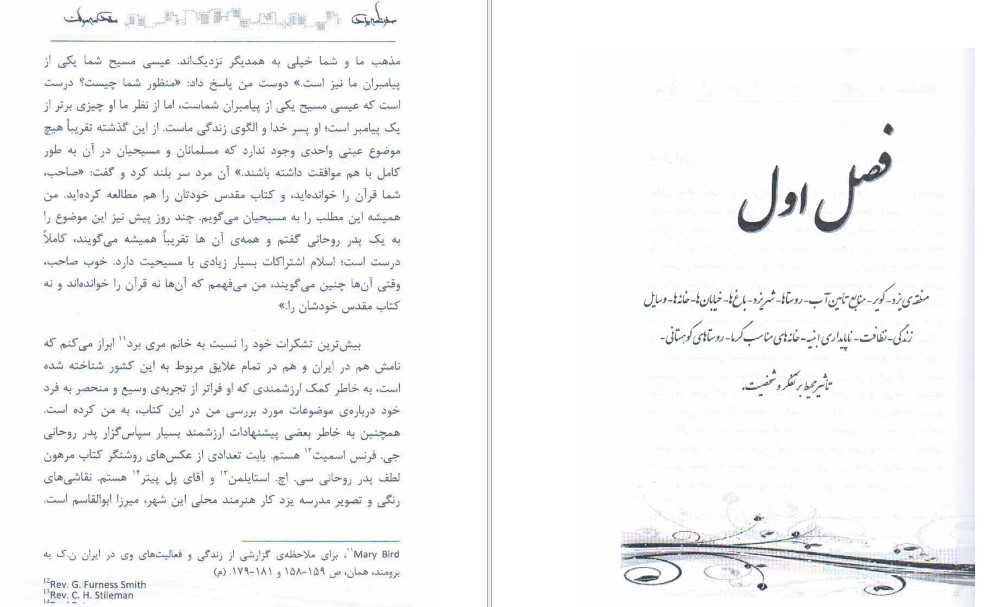 مذهب ما و شما خیلی به همدیگر نزدیک‌اند. عیسی مسیح شما یکی از
پیامبران ما نیز است.» دوست من پاسخ داد: «منظور شما چیست؟ درست
است که عیسی مسیح یکی از پیامبران شماست، اما از نظر ما او چیزی برتر از
یک پیامبر است؛ او پسر خدا و الگوی زندگی ماست. از این گذشته تقریباً هیچ
موضوع عینی واحدی وجود ندارد که مسلمانان و مسیحیان در آن به طور
کامل با هم موافقت داشته باشند.» آن مرد سر بلند کرد و گفت: «صاحب،
شما قرآن را خوانده‌اید، و کتاب مقدس خودتان را هم مطالعه کرده‌اید. من
همیشه این مطلب را به مسیحیان می‌گویم. چند روز پیش نیز این موضوع را
به یک پدر روحانی گفتم و همه‌ی آن ها تقریباً همیشه می‌گویند، کاملاً
درست است؛ اسلام اشتراکات بسیار زیادی با مسیحیت دارد. خوب صاحب،
وقتی آن‌ها چنین می‌گویند، من می‌فهمم که آن‌ها نه قرآن را خوانده‌اند و نه
کتاب مقدس خودشان را.»
بیش‌ترین تشکرات خود را نسبت به خانم مری برد۱۱ ابراز می‌کنم که
نامش هم در ایران و هم در تمام علایق مربوط به این کشور شناخته شده
است، به خاطر کمک ارزشمندی که او فراتر از تجربه‌ی وسیع و منحصر به فرد
خود درباره‌ی موضوعات مورد بررسی من در این کتاب، به من کرده است.
همچنین به خاطر بعضی پیشنهادات ارزشمند بسیار سپاس‌گزار پدر روحانی
جی. فرنس اسمیت۱۲ هستم. بابت تعدادی از عکس‌های روشنگر کتاب مرهون
لطف پدر روحانی سی. اچ. استایلمن۱۳ و آقای پل پیتر۱۴ هستم. نقاشی‌های
رنگی و تصویر مدرسه یزد کار هنرمند محلی این شهر، میرزا ابوالقاسم است.
۱۱Mary Bird، برای ملاحظه‌ی گزارشی از زندگی و فعالیت‌های وی در ایران ن.ک به
برومند، همان، ص ۱۵۹-۱۵۸ و ۱۸۱-۱۷۹. (م)
۱۲Rev. G. Furness Smith
۱۳Rev. C. H. Stileman
فصل اول
منطقه‌ی یزد- کویر- منابع تامین آب- روستاها- شهر یزد- باغ‌ها- خیابان‌ها- خانه‌ها- وسایل
زندگی- نظافت- ناپایداری ابنیه- خانه‌های مناسب گرما- روستاهای کوهستانی-
تأثیر محیط بر تفکر و شخصیت.